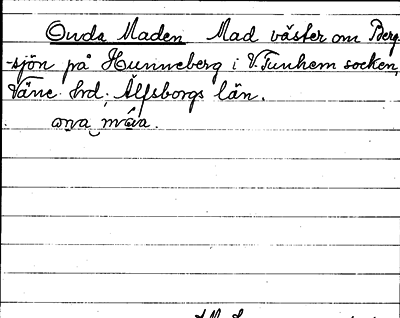 Onda Maden Mad väster om Berg-
-sjön på Hunneberg i V. Tunhem socken,
Väne hrd, Älfsborgs län.